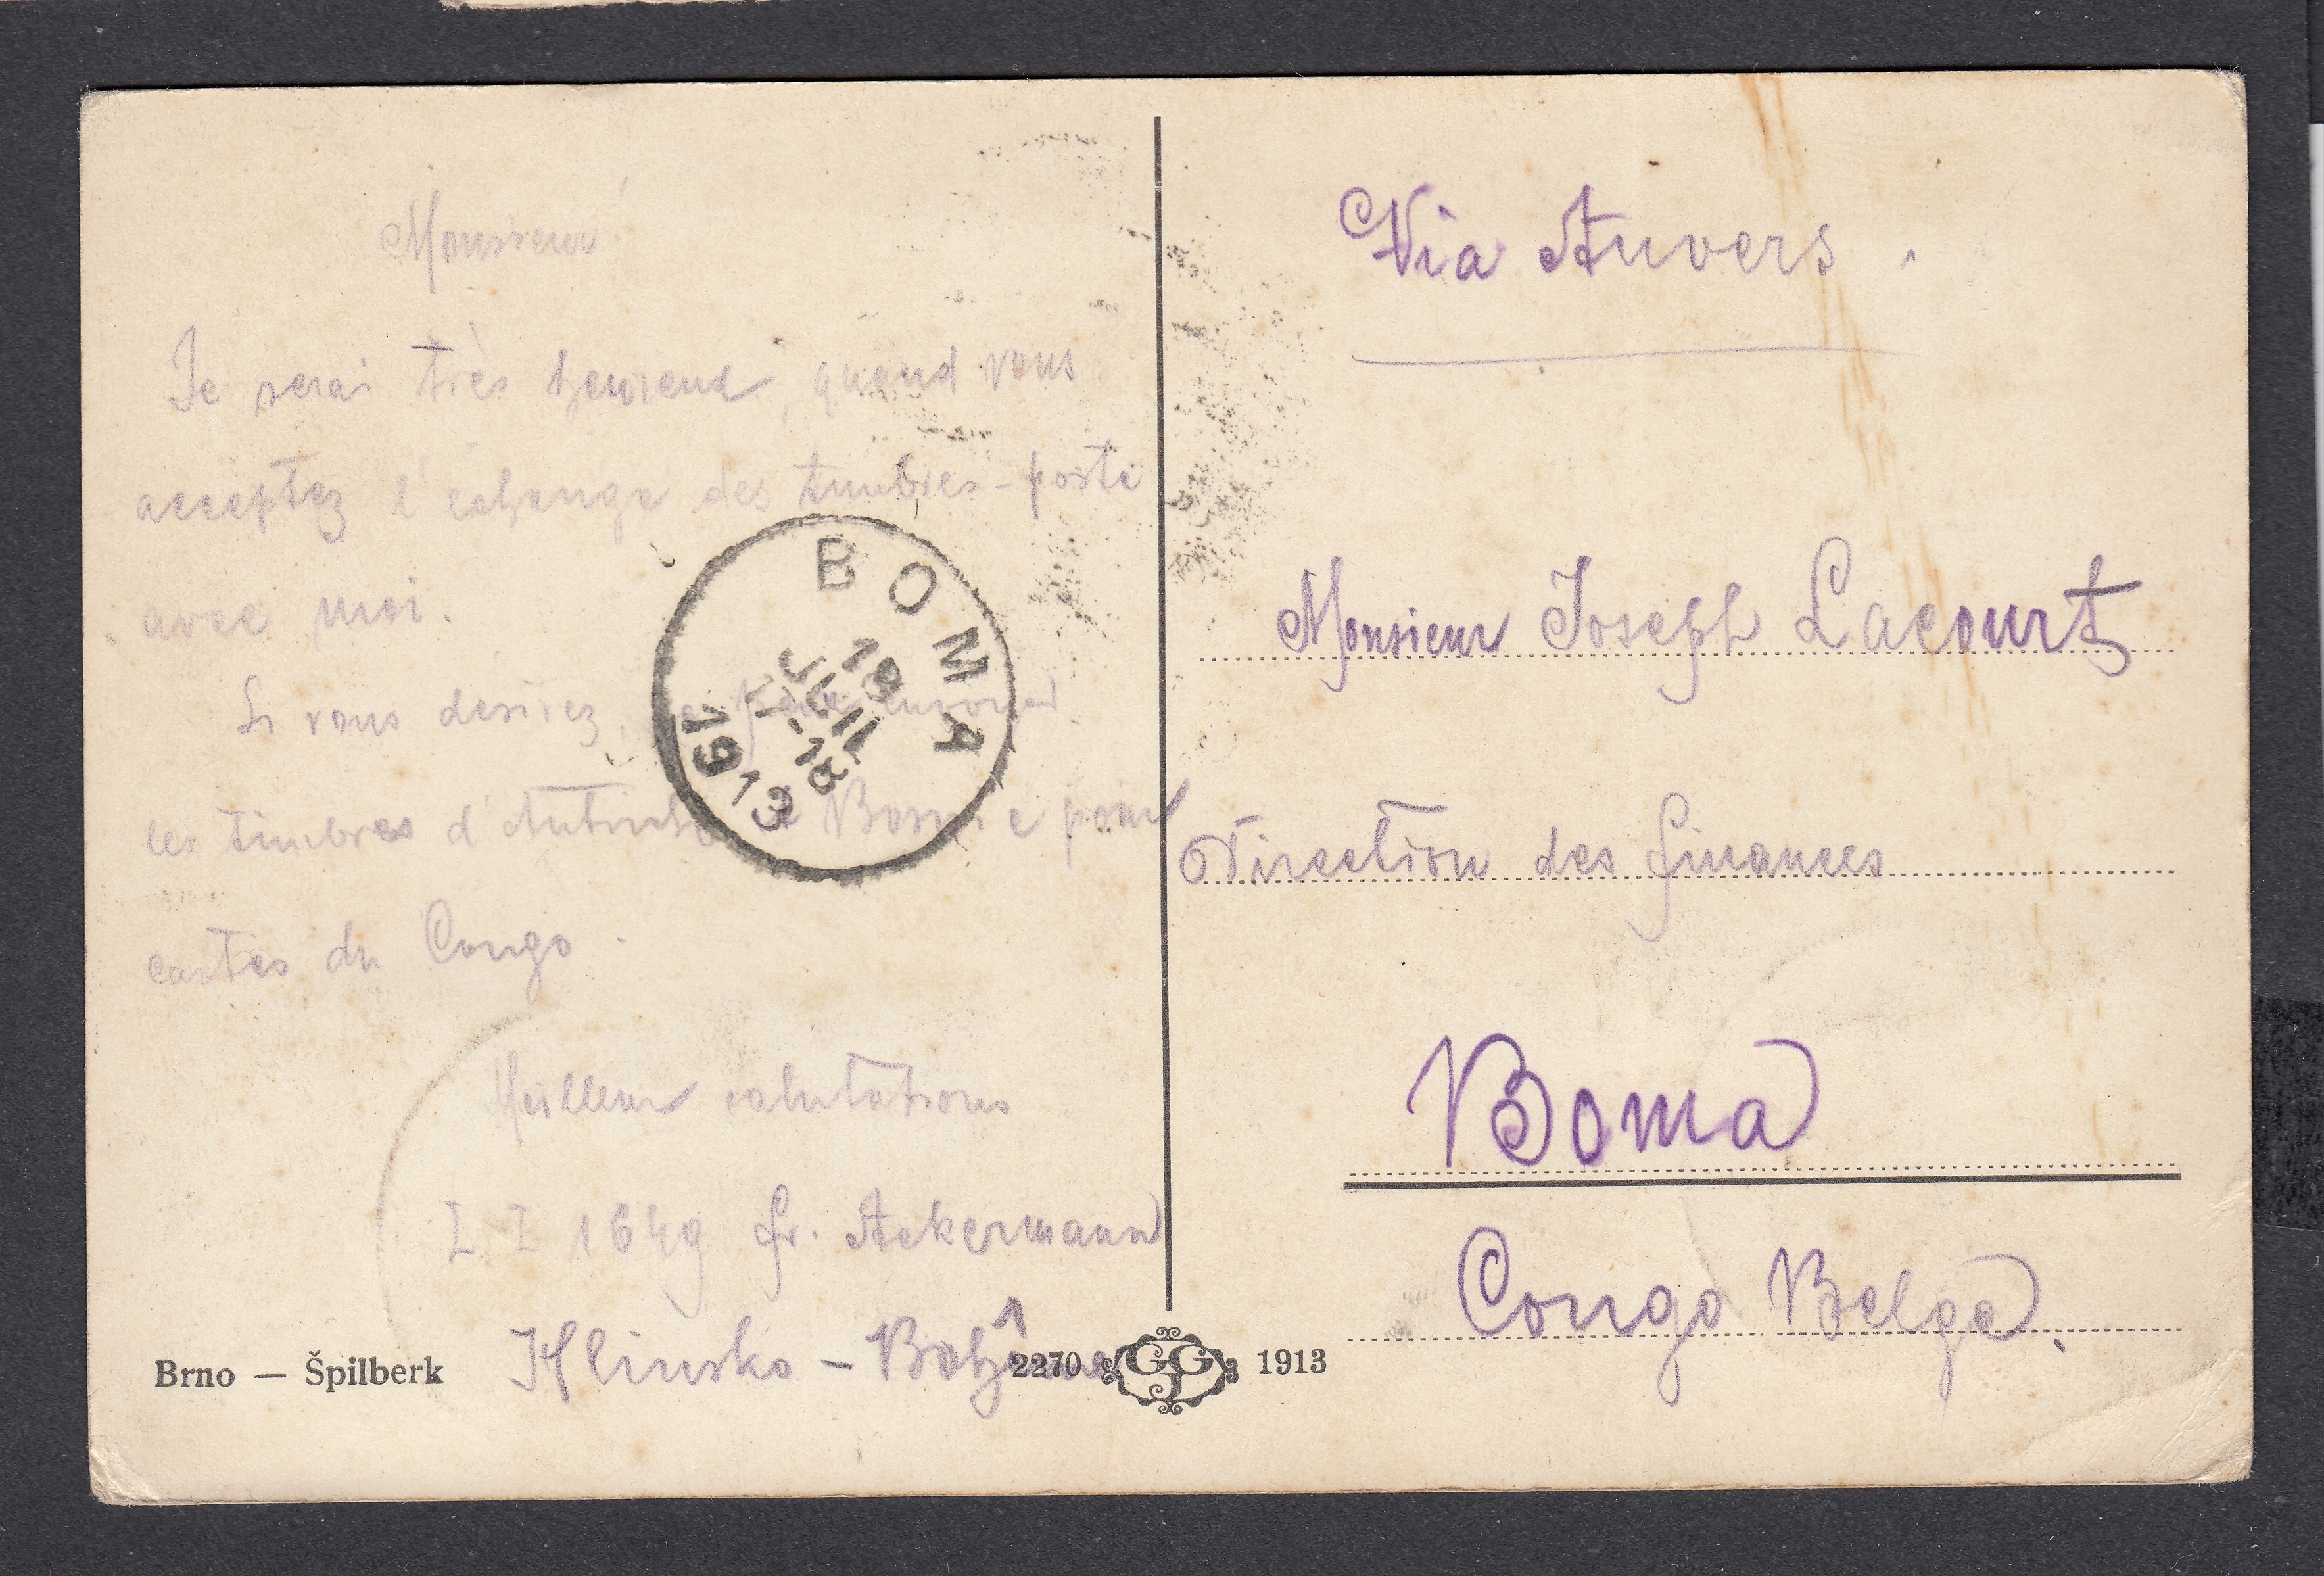 Monsieur!
Je serai très heureux, quand vous
acceptez l'echange des timbres-poste
avec moi.
Si vous desirez, je peux envoyer
les timbres d'Autriche Bosnie pour
cartes du Congo.
Meilleur salutations
1649 Fr. Ackermann
Hlinsko – Bohême
Brno — Špilberk
BOMA
19
JUIL
-18
1913
2270 1913
Via Anvers.
Monsieur Joseph Lacourt
Direction des finances
Boma
Congo Belge.